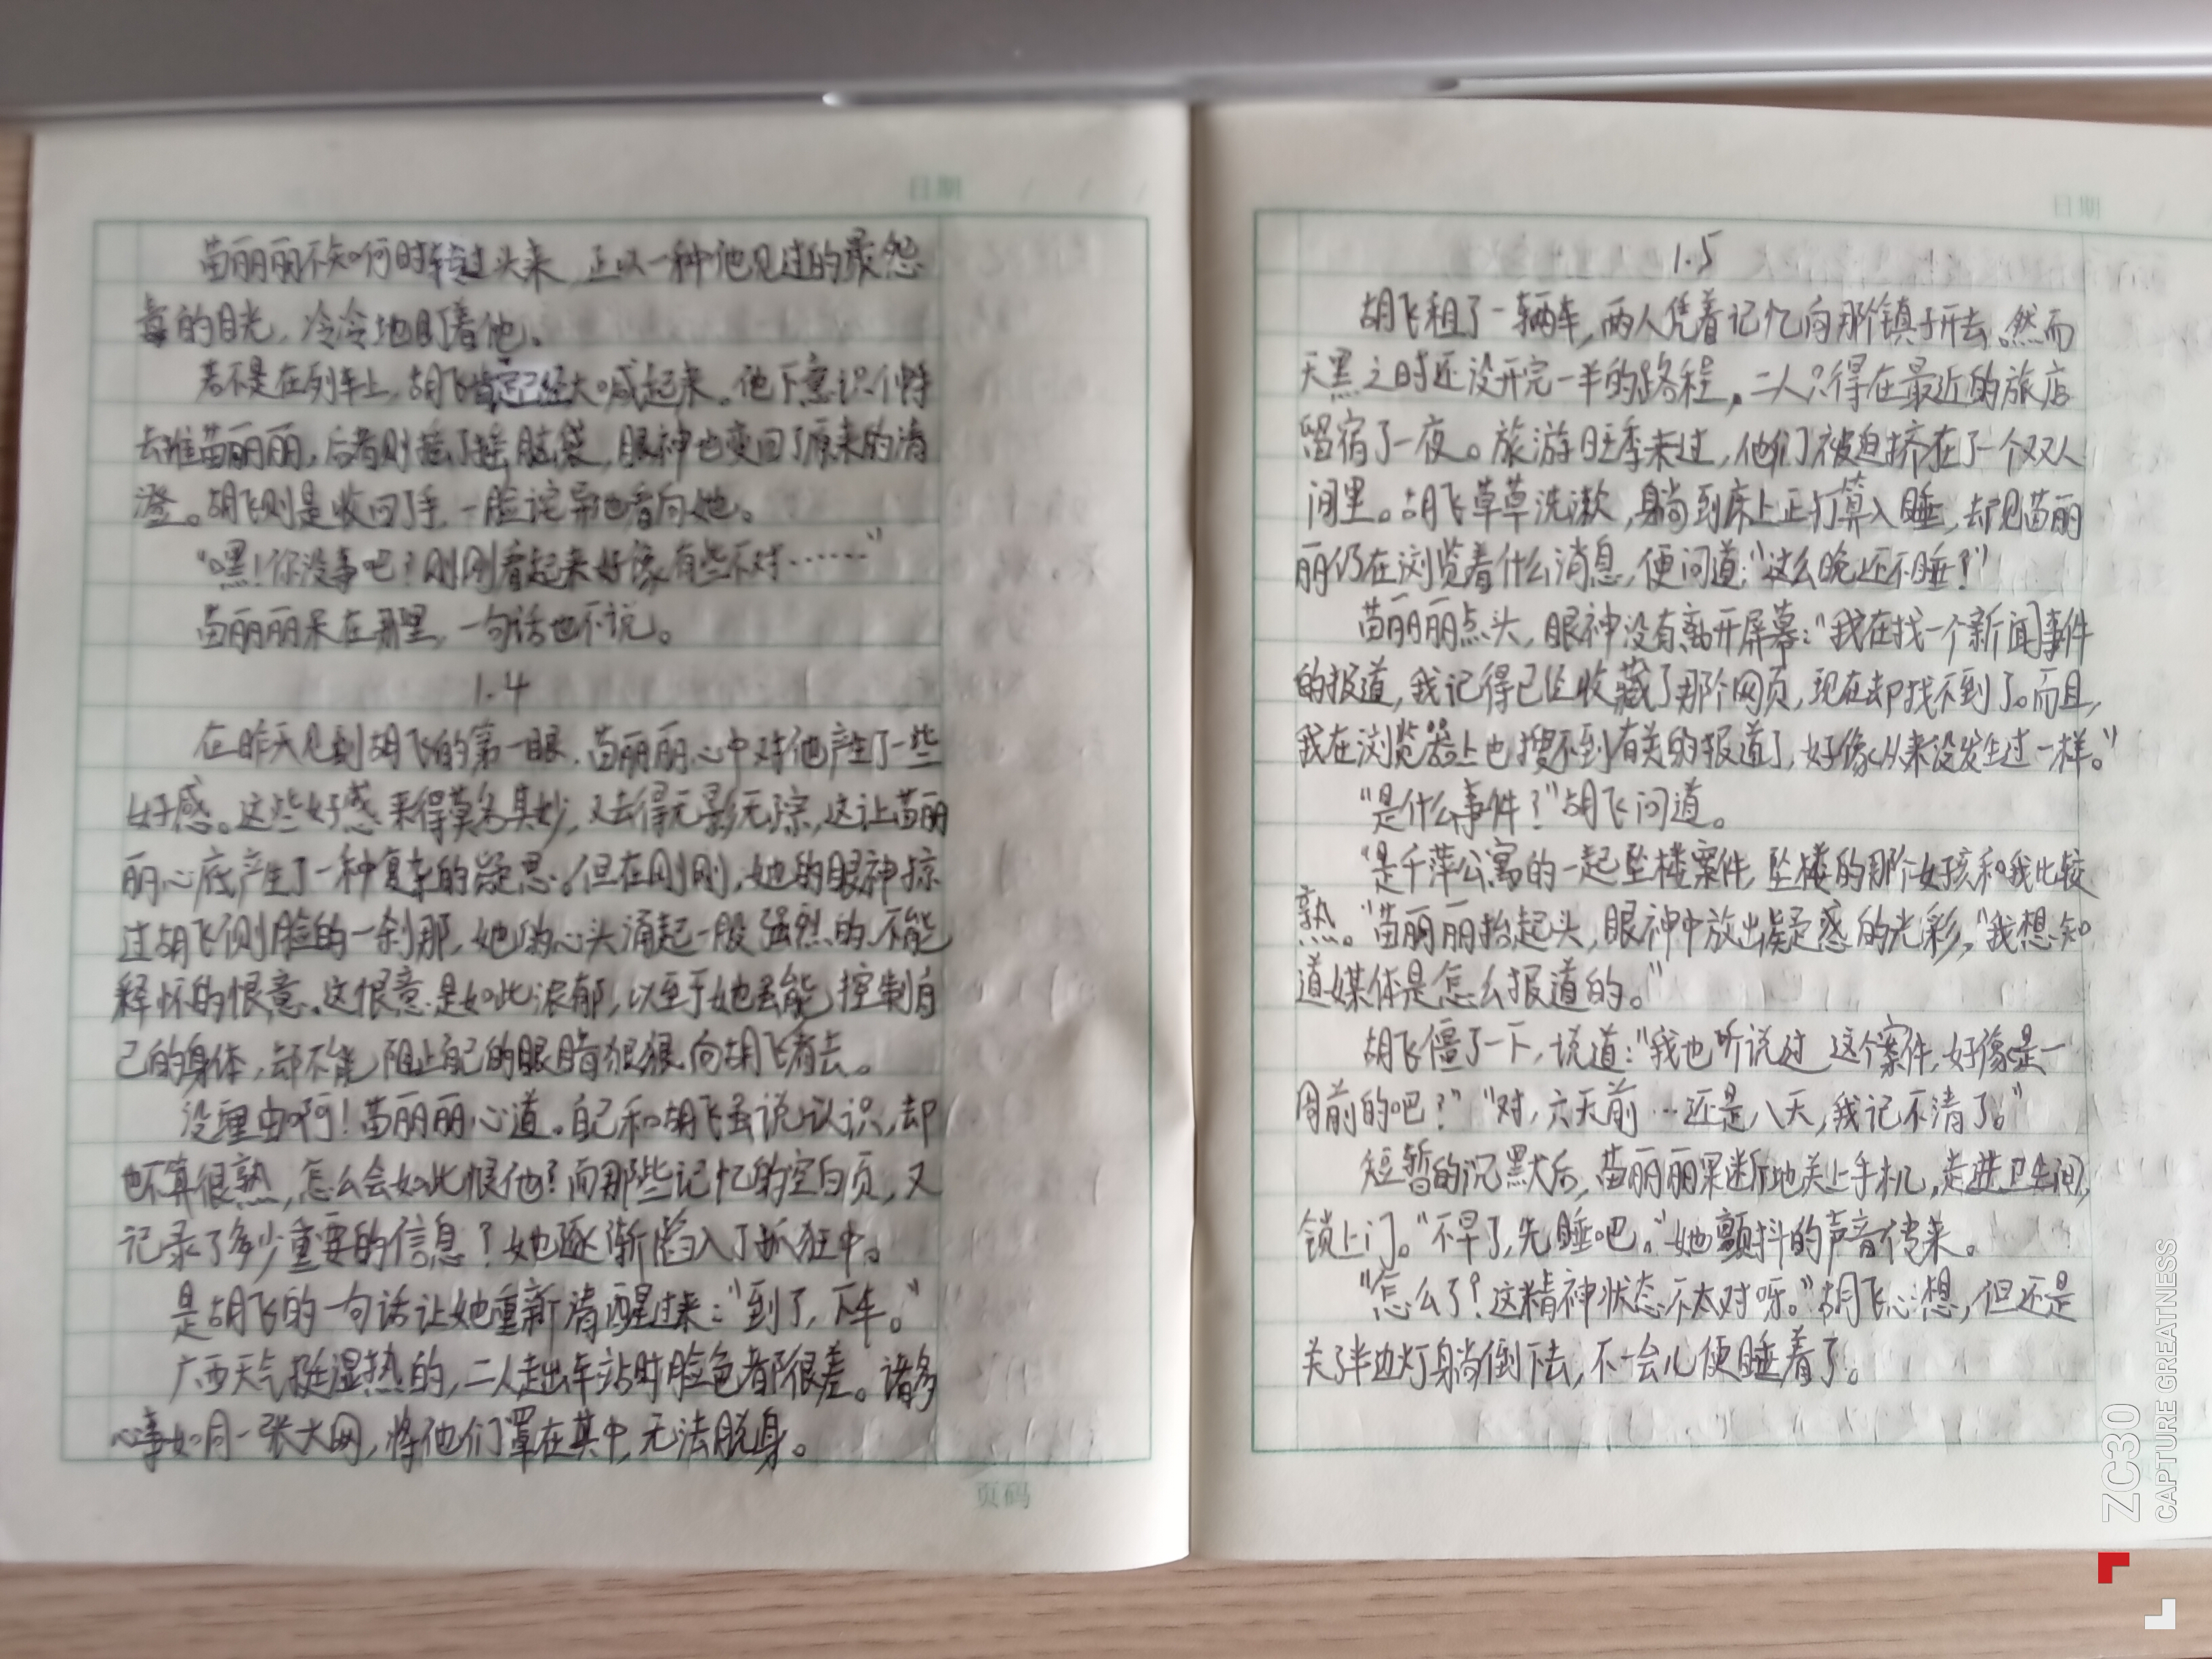 日期
苗丽丽不知何时转过头来,正以一种他见过的最怨
毒的目光,冷冷地盯着他。
若不是在列车上,胡飞肯定已经大喊起来。他下意识伸手
去推苗丽丽,后者则摇了摇脑袋,眼神也变回了原来的清
澄。胡飞则是收回了手,一脸诧异地看向她。
“嘿!你没事吧?刚刚看起来好像有些不对……”
苗丽丽呆在那里,一句话也不说。
1.4
在昨天见到胡飞的第一眼,苗丽丽心中对他产生了一些
好感。这些好感来得莫名其妙,又去得无影无踪,这让苗丽
丽心底产生了一种复杂的疑思。但在刚刚,她的眼神掠
过胡飞侧脸的一刹那,她的心头涌起一股强烈的、不能
释怀的恨意。这恨意是如此浓郁,以至于她虽能控制自
己的身体,却不能阻止自己的眼睛狠狠向胡飞看去。
没理由啊!苗丽丽心道。自己和胡飞虽说认识,却
也不算很熟,怎么会如此恨他?而那些记忆的空白页,又
记录了多少重要的信息?她逐渐陷入了抓狂中。
是胡飞的一句话让她重新清醒过来:“到了,下车。”
广西天气挺湿热的,二人走出车站时脸色都很差。诸多
心事如同一张大网,将他们罩在其中,无法脱身。
页码
日期
1.5
胡飞租了一辆车,两人凭着记忆向那个镇子开去。然而
天黑之时还没开完一半的路程,二人只得在最近的旅店
留宿了一夜。旅游旺季未过,他们被迫挤在了一个双人
间里。胡飞草草洗漱,躺到床上正打算入睡,却见苗丽
丽仍在浏览着什么消息,便问道:“这么晚还不睡?”
苗丽丽点头,眼神没有离开屏幕:“我在找一个新闻事件
的报道,我记得已经收藏了那个网页,现在却找不到了。而且,
我在浏览器上也搜不到有关的报道了,好像从来没发生过一样。”
“是什么事件?”胡飞问道。
“是千萍公寓的一起坠楼案件,坠楼的那个女孩和我比较
熟。”苗丽丽抬起头,眼神中放出疑惑的光彩,“我想知
道媒体是怎么报道的。”
胡飞僵了一下,说道:“我也听说过这个案件,好像是一
周前的吧?”“对,六天前…还是八天,我记不清了。”
短暂的沉默后,苗丽丽果断地关上手机,走进卫生间,
锁上门。“不早了,先睡吧。”她颤抖的声音传来。
“怎么了?这精神状态不太对呀。”胡飞心想,但还是
关了半边灯躺倒下去,不一会儿便睡着了。
ZC30
CAPTURE GREATNESS